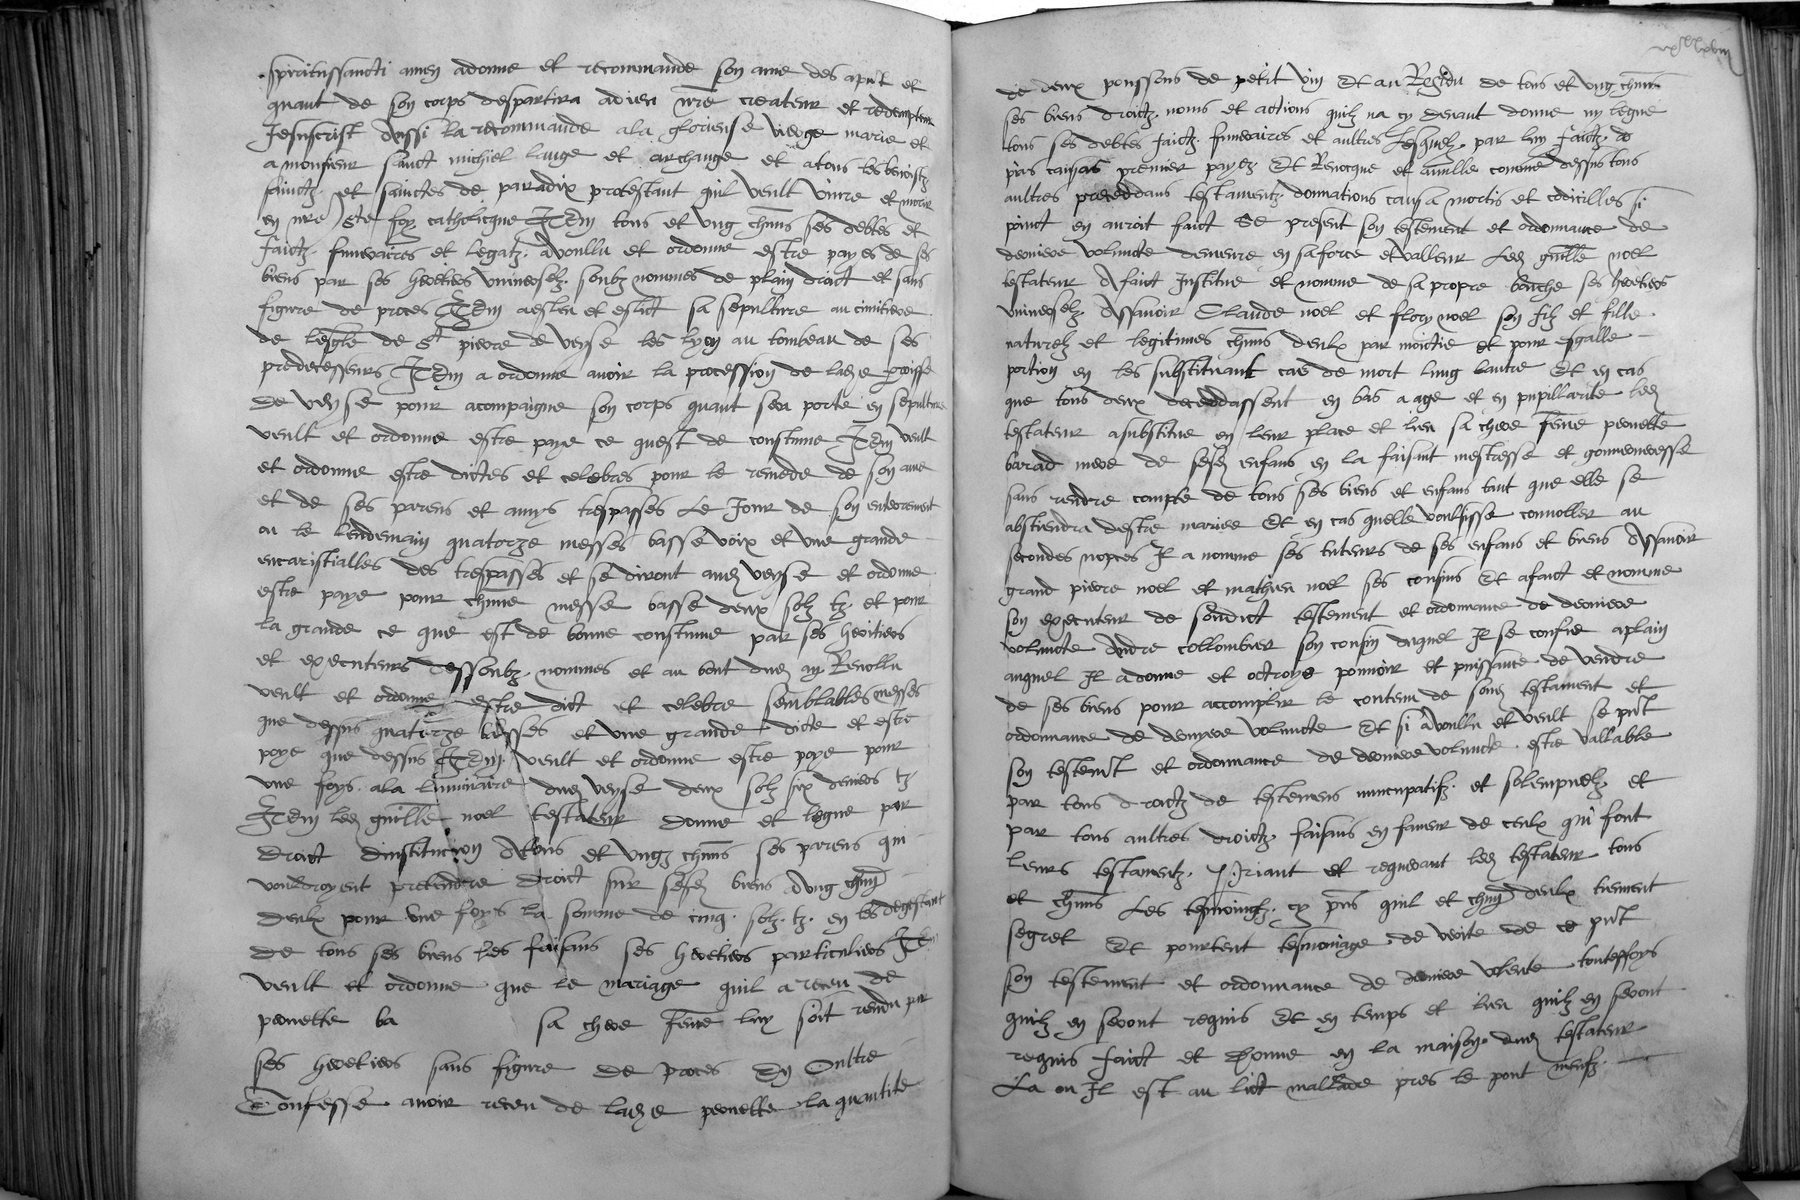 spiritussancti amen a donne et recommande son ame des apnt et
quant de son corps despartira a dieu nre createur et redempteur
Jesuscrist Aussi la recommande a la glorieuse vierge marie et
a monsieur sainct michiel lange et archange et a tous les benoistz
sainctz et sainctes de paradix protestant quil veult vivre et morir
en nre ste foy catholicque Item tous et ung chms ses debtes et
faictz funeraires et legatz a voullu et ordonne estre payes de ses
biens par ses heretiers universelz soubz nommes de plain droict et sans
figure de proces Item a esleu et eslict sa sepulture au cimitiere
de lesglie de st pierre de veyse les lyon au tombeau de ses
predecesseurs Item a ordonne avoir la procession de lad parroisse
de veyse pour acompaigne son corps quant sera porte en sepulture
veult et ordonne estre paye ce quest de coustume Item veult
et ordonne estre dictes et celebres pour le remede de son ame
et de ses parens et amys trespasses Le Jour de son enterrement
ou le lendemain quatorze messes basse voix et une grande
eucaristialles des trespasses et se diront aud veyse et ordonne
estre paye pour chune messe basse deux solz tz et pour
la grande ce que est de bonne coustume par ses heritiers
et executeurs dessoubz nommes et au bout dud an Revollu
veult et ordonne estre dict et celebre semblables messes
que dessus quatorze basses et une grande dicte et estre
paye que dessus Item veult et ordonne estre paye pour
une foys a la luminaire dud veyse deux solz six deniers tz
Item led guille noel testateur donne et legue par
droict dinstitucion A tous et ungz chms ses parens qui
vouldroyent pretendre droict sur sesd biens A ung chun
deulx pour une foys la somme de cinq solz tz en les degestant
de tous ses biens les faisans ses heretiers particuliers Item
veult et ordonne que le mariage quil a receu de
pernette ba sa chere feme luy soit rendu par
ses heretiers sans figure de proces En Oultre
Confesse avoir receu de lad pernette la quantite
de deux ponssons de petit vin Et au Resdeu de tous et ung chms
ses biens droictz noms et actions quilz na cy devant donne ny legue
tous ses debtes faictz funeraires et aultres Lesquelz par luy faictz
premier payez Et Revocque et anulle comme dessus tous
aultres preceddans testamentz donnations causa mortis et codicilles si
poinct en avroit faict Ce present son testement et ordonnance de
derniere volunte demeure en sa force et valleur Led guille noel
testateur A faict Institue et nomme de sa propre bouche ses heretiers
universelz Assavoir Claude noel et flory noel son filz et fille
naturelz et legitimes chms deulx par moictie et pour esgalle
portion en les substituant cas de mort lung lautre Et en cas
que tous deux deceddassent en bas a age et en pupillarite led
testateur a substitue en leur place et lieu sa chere feme pernette
barad mere de sesd enfans en la faisant mestresse et gouverneresse
sans rendre compte de tous ses biens et enfans tant que elle se
abstiendra destre mariee Et en cas quelle voulsisse convoller au
secondes nopces Il a nomme ses tuteurs de ses enfans et biens Assavoir
grand pierre noel et mathieu noel ses cousins Et a faict et nomme
son executeur de sondict testement et ordonnance de derniere
volunte Andre collombier son cousin duquel Il se confie a plain
auquel Il a donne et octroye pouvoir et puissance de vendre
de ses biens pour accomplir le contenu de soud testament et
ordonnance de dernyere volunte Et si a voullu et veult se pnt
son testemt et ordonnance de derniere volunte estre vallable
par tous droictz de testemens nuncupatifz et solempnelz et
par tous aultres droictz faisans en faveur de ceulx qui font
leurs testamentz Priant et requerant led testateur tous
et chms Les tesmoingtz cy pns quil et chun deulx tiement
segret Et pourtent tesmoniage de verite de ce pnt
son testement et ordonnance de derniere volente touteffoys
quilz en seront requis Et en temps et lieu quilz en seront
requis faict et Donne en la maison dud testateur
La ou Il est au lict mallade pres le pont